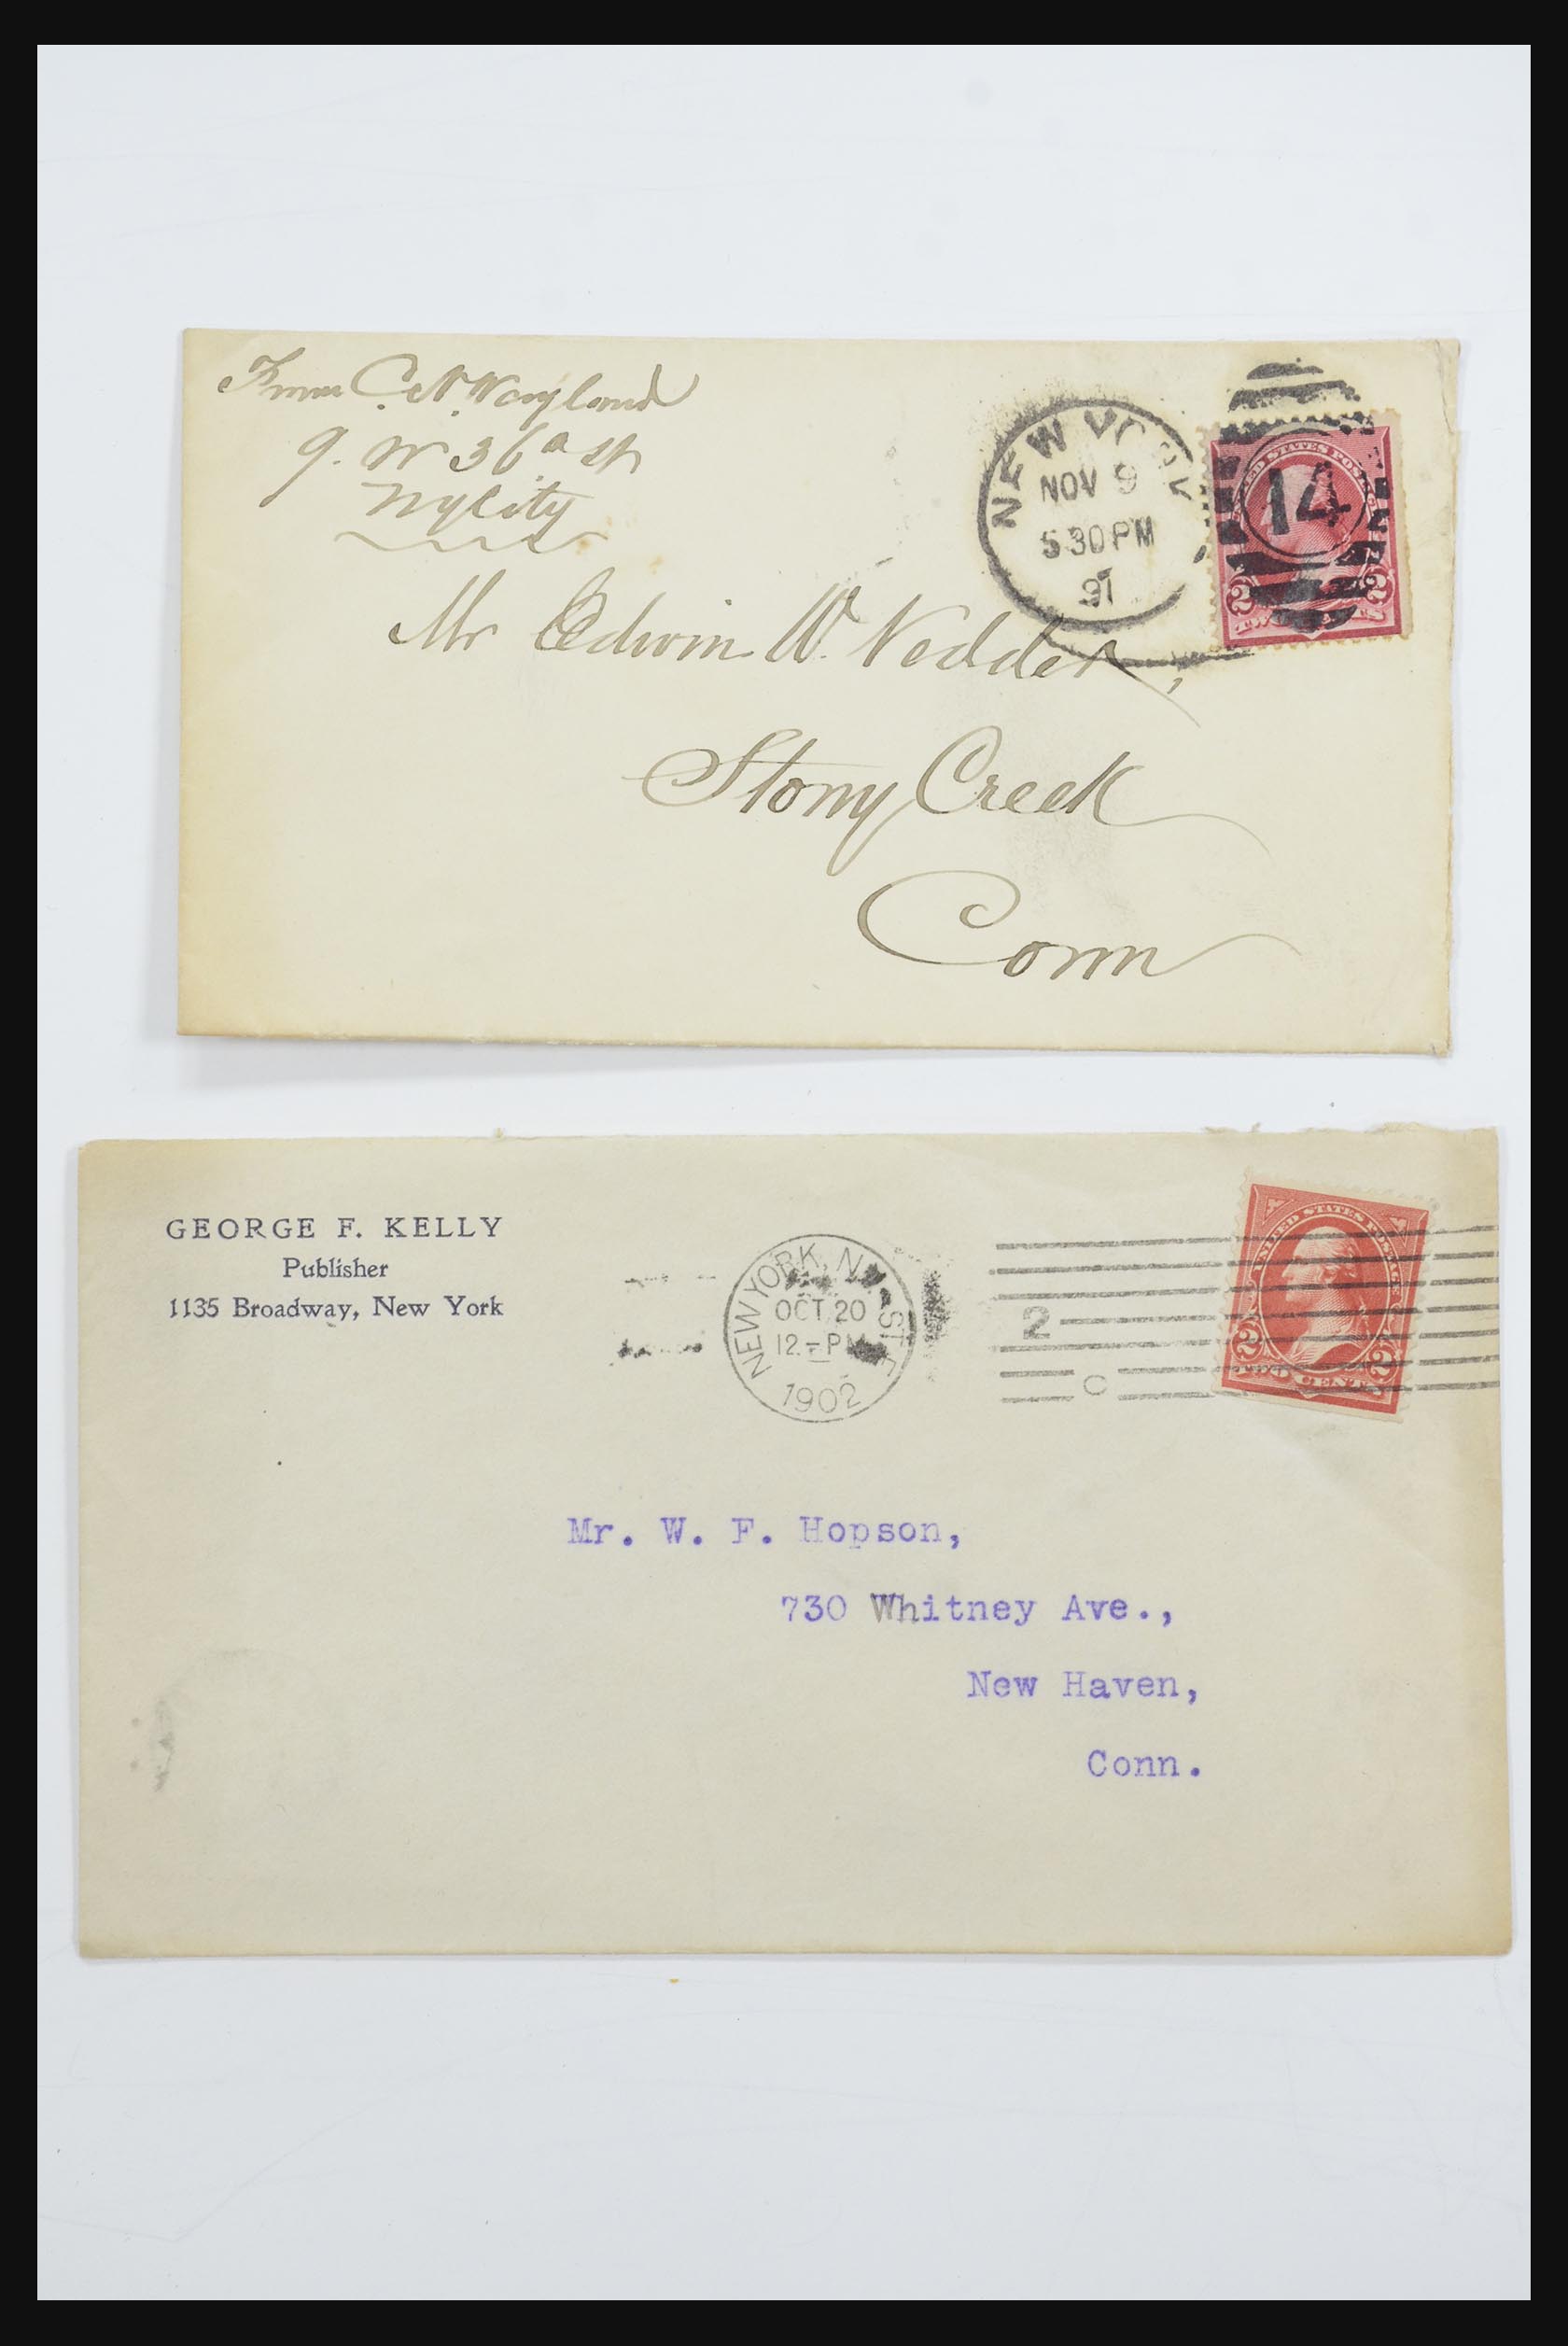 From C. N. Wayland
9. W 36th St
NyCity
NEW YORK
NOV 9
530PM
91
14
UNITED STATES POSTAGE
2 2
TWO CENTS
Mr Edwin W. Vedder,
Stony Creek
Conn
GEORGE F. KELLY
Publisher
1135 Broadway, New York
NEW YORK, N.Y. ST
OCT 20
12 - PM
1902
2
C
UNITED STATES POSTAGE
2 2
TWO CENTS
Mr. W. F. Hopson,
730 Whitney Ave.,
New Haven,
Conn.